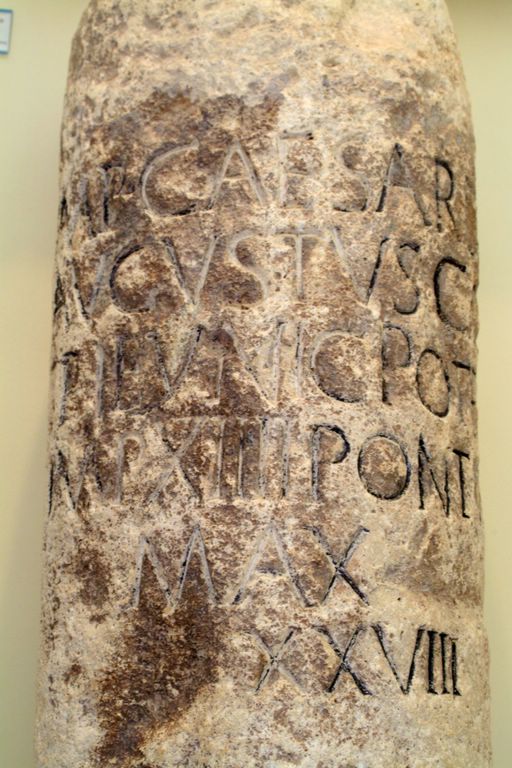 IMP CAESAR
AVGVSTVS C
TRIBVNIC POT
IMP XIIII PONTI
MAX
XXVIII